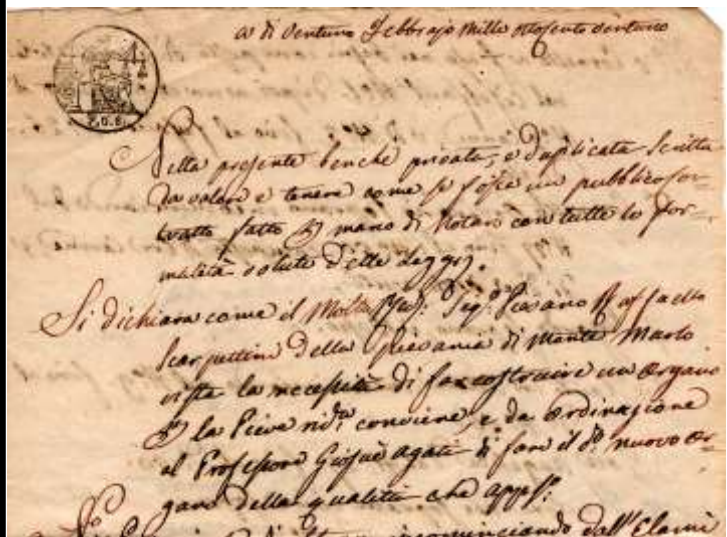 a di Ventuno Febbrajo Mille ottocento ventuno
Nella presente benche privata, e duplicata Scritta
da valere e tenere come se fosse un pubblico Con-
tratto fatto p mano di Notaro con tutte le for-
malità volute dalle Leggi.
Si dichiara come il Molto Revd: Sigr: Pievano Raffaello
Scarpettini della Pievania di Monte Murlo
vista la necessità di far costruire un Organo
p la Pieve sudta conviene, e da Ordinazione
al Professore Giosuè Agati di fare il do nuovo Or-
gano della qualità che appo:
incominciando dall'Elami